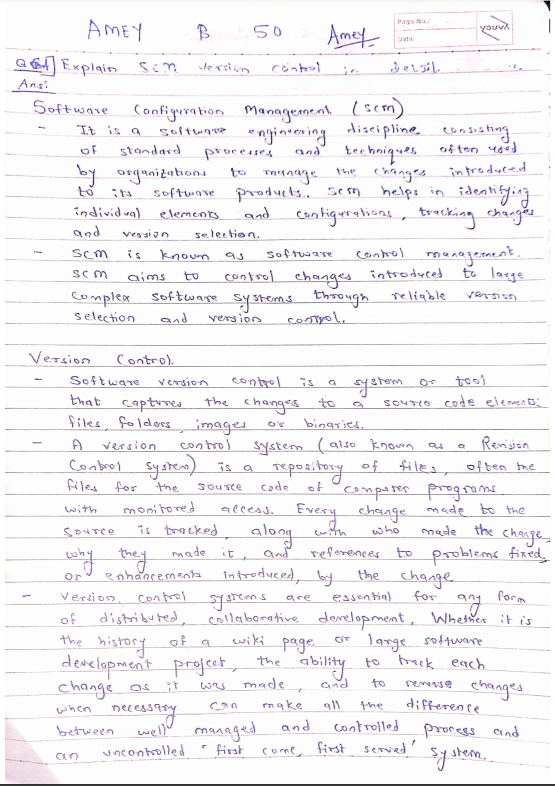 AMEY B 50 Amey
Page No.:
Date
YOUVA
Explain SCM version control in detail.
Ans:
Software Configuration Management (SCM)
- It is a software engineering discipline consisting
of standard processes and techniques often used
by organizations to manage the changes introduced
to its software products. SCM helps in identifying
individual elements and configurations, tracking changes
and version selection.
- SCM is known as software control management.
SCM aims to control changes introduced to large
complex software systems through reliable version
selection and version control.
Version Control.
- Software version control is a system or tool
that captures the changes to a source code elements:
files, folders, images or binaries.
- A version control system (also known as a Revision
Control System) is a repository of files, often the
files for the source code of computer programs
with monitored access. Every change made to the
source is tracked, along with who made the change,
why they made it, and references to problems fixed,
or enhancements introduced, by the change
- Version control systems are essential for any form
of distributed, collaborative development. Whether it is
the history of a wiki page or large software
development project, the ability to track each
change as it was made, and to reverse changes
when necessary can make all the difference
between well managed and controlled process and
an uncontrolled 'first come, first served' system.